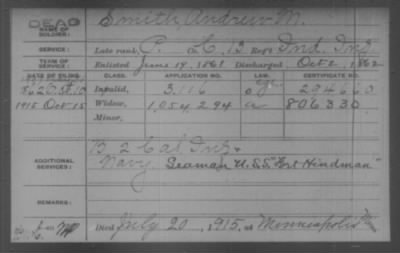 DEAD
NAME OF SOLDIER: Smith, Andrew M.
SERVICE: Late rank, P. Co. H, 13 Reg't Ind. Inf
TERM OF SERVICE: Enlisted June 19, 1861 Discharged Oct 2, 1862
DATE OF FILING. CLASS. APPLICATION NO. LAW. CERTIFICATE NO.
1862 Oct 10 Invalid, 3,116
1915 Oct 15 Widow, 1,054,294 a 806330
Minor,
ADDITIONAL SERVICES: B 2 Cal Inf &
Navy. Seaman U.S.S. "Fort Hindman"
REMARKS:
Died July 20, 1915, at Minneapolis Minn